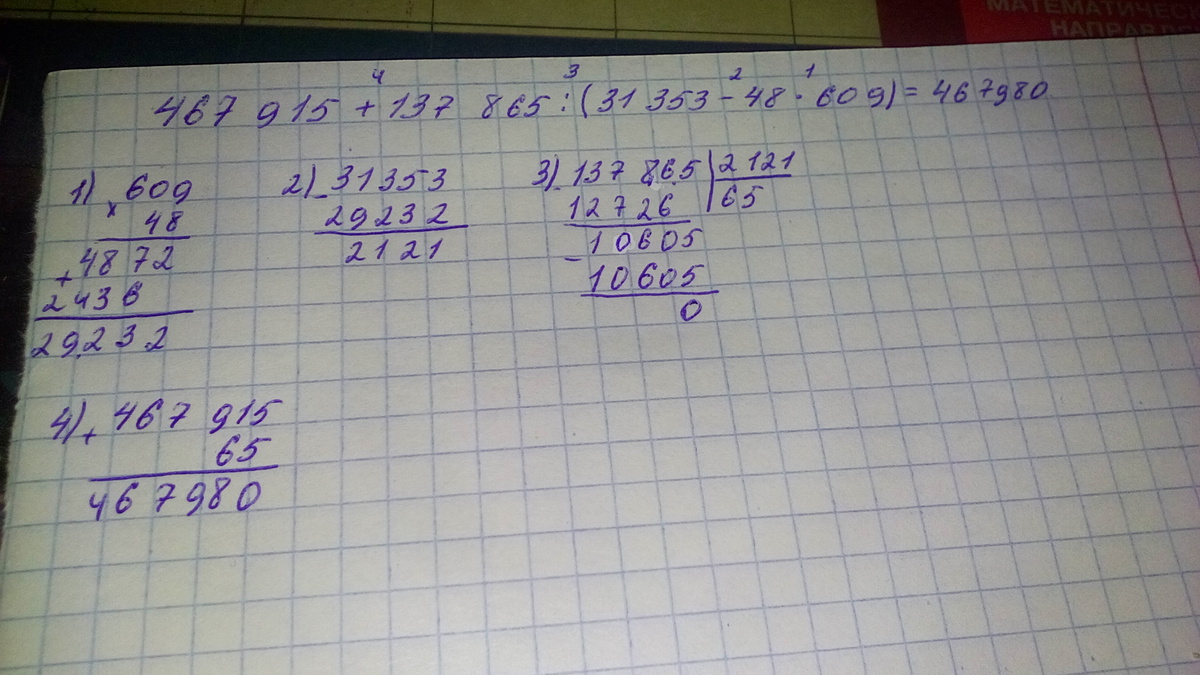 МАТЕМАТИЧЕС
НАПРАВ
4 3 2 1
467 915 + 137 865 : (31 353 - 48 · 609) = 467980
1) × 609
48
+ 4872
2436
29232
2) - 31353
29232
2121
3) - 137 865 | 2 121
12726 | 65
- 10605
10605
0
4) + 467 915
65
467980